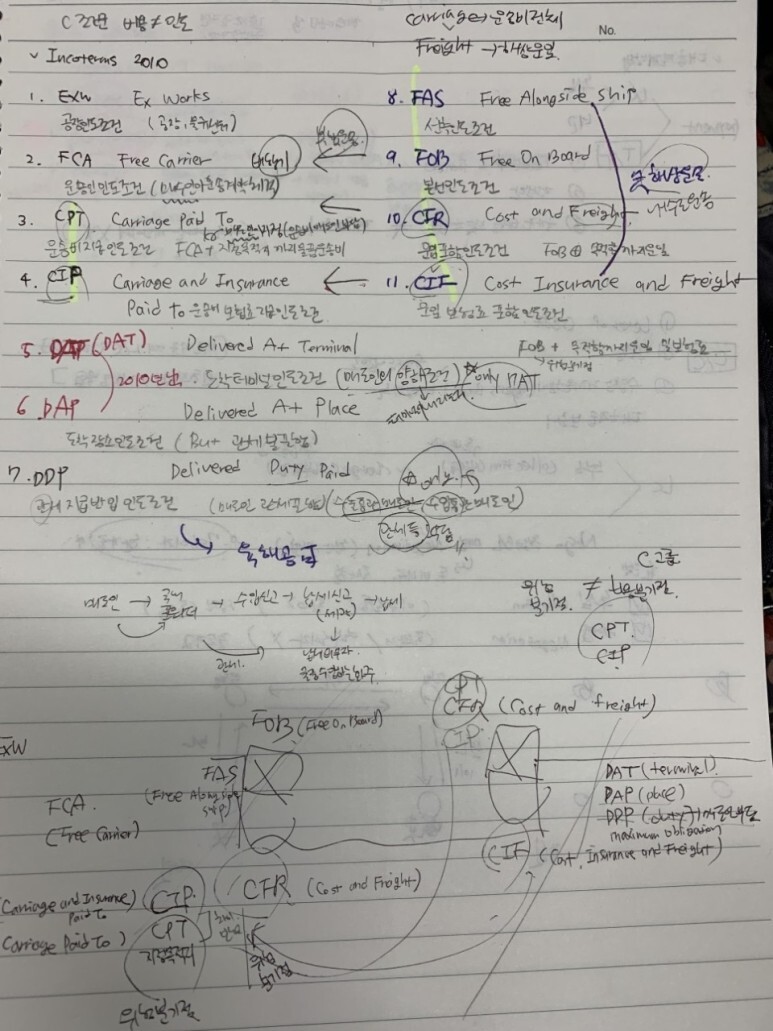 C조건 비용≠인도
Carriage → 운송비 전체
Freight → 해상운임
No.
Incoterms 2010
1. EXW Ex Works
공장인도조건
2. FCA Free Carrier
운송인인도조건
3. CPT Carriage Paid To
운송비지급인도조건 FCA+
4. CIP Carriage and Insurance
Paid to 운송비 보험료지급인도조건
5. DAP (DAT) Delivered At Terminal
2010년 도착터미널인도조건 (매도인의 양하조건) only DAT
6. DAP Delivered At Place
도착장소인도조건 (But 관세 불포함)
7. DDP Delivered Duty Paid
관세지급반입인도조건 only
관세 등
8. FAS Free Alongside ship
선측인도조건
9. FOB Free On Board
본선인도조건
해상운송
내수로운송
10. CFR Cost and Freight
운임포함인도조건 FOB ⊕ 목적항까지운임
11. CIF Cost Insurance and Freight
운임 보험료 포함인도조건
FOB + 목적항까지운임 및 보험료
매도인 → → 수입신고 → 납세신고 → 납세
(세관)
관세
납세의무자
C그룹
위험분기점 ≠ 비용분기점
CPT
CIP
FOB (Free On Board)
CPT
CFR (Cost and freight)
CIP
EXW
FAS
(Free Along side ship)
FCA
(Free Carrier)
DAT (terminal)
DAP (place)
DDP (duty)
maximum obligation
CIF (Cost, Insurance and Freight)
CFR (Cost and Freight)
(Carriage and Insurance Paid To) CIP
(Carriage Paid To) CPT
지정목적지
위험분기점
위험분기점